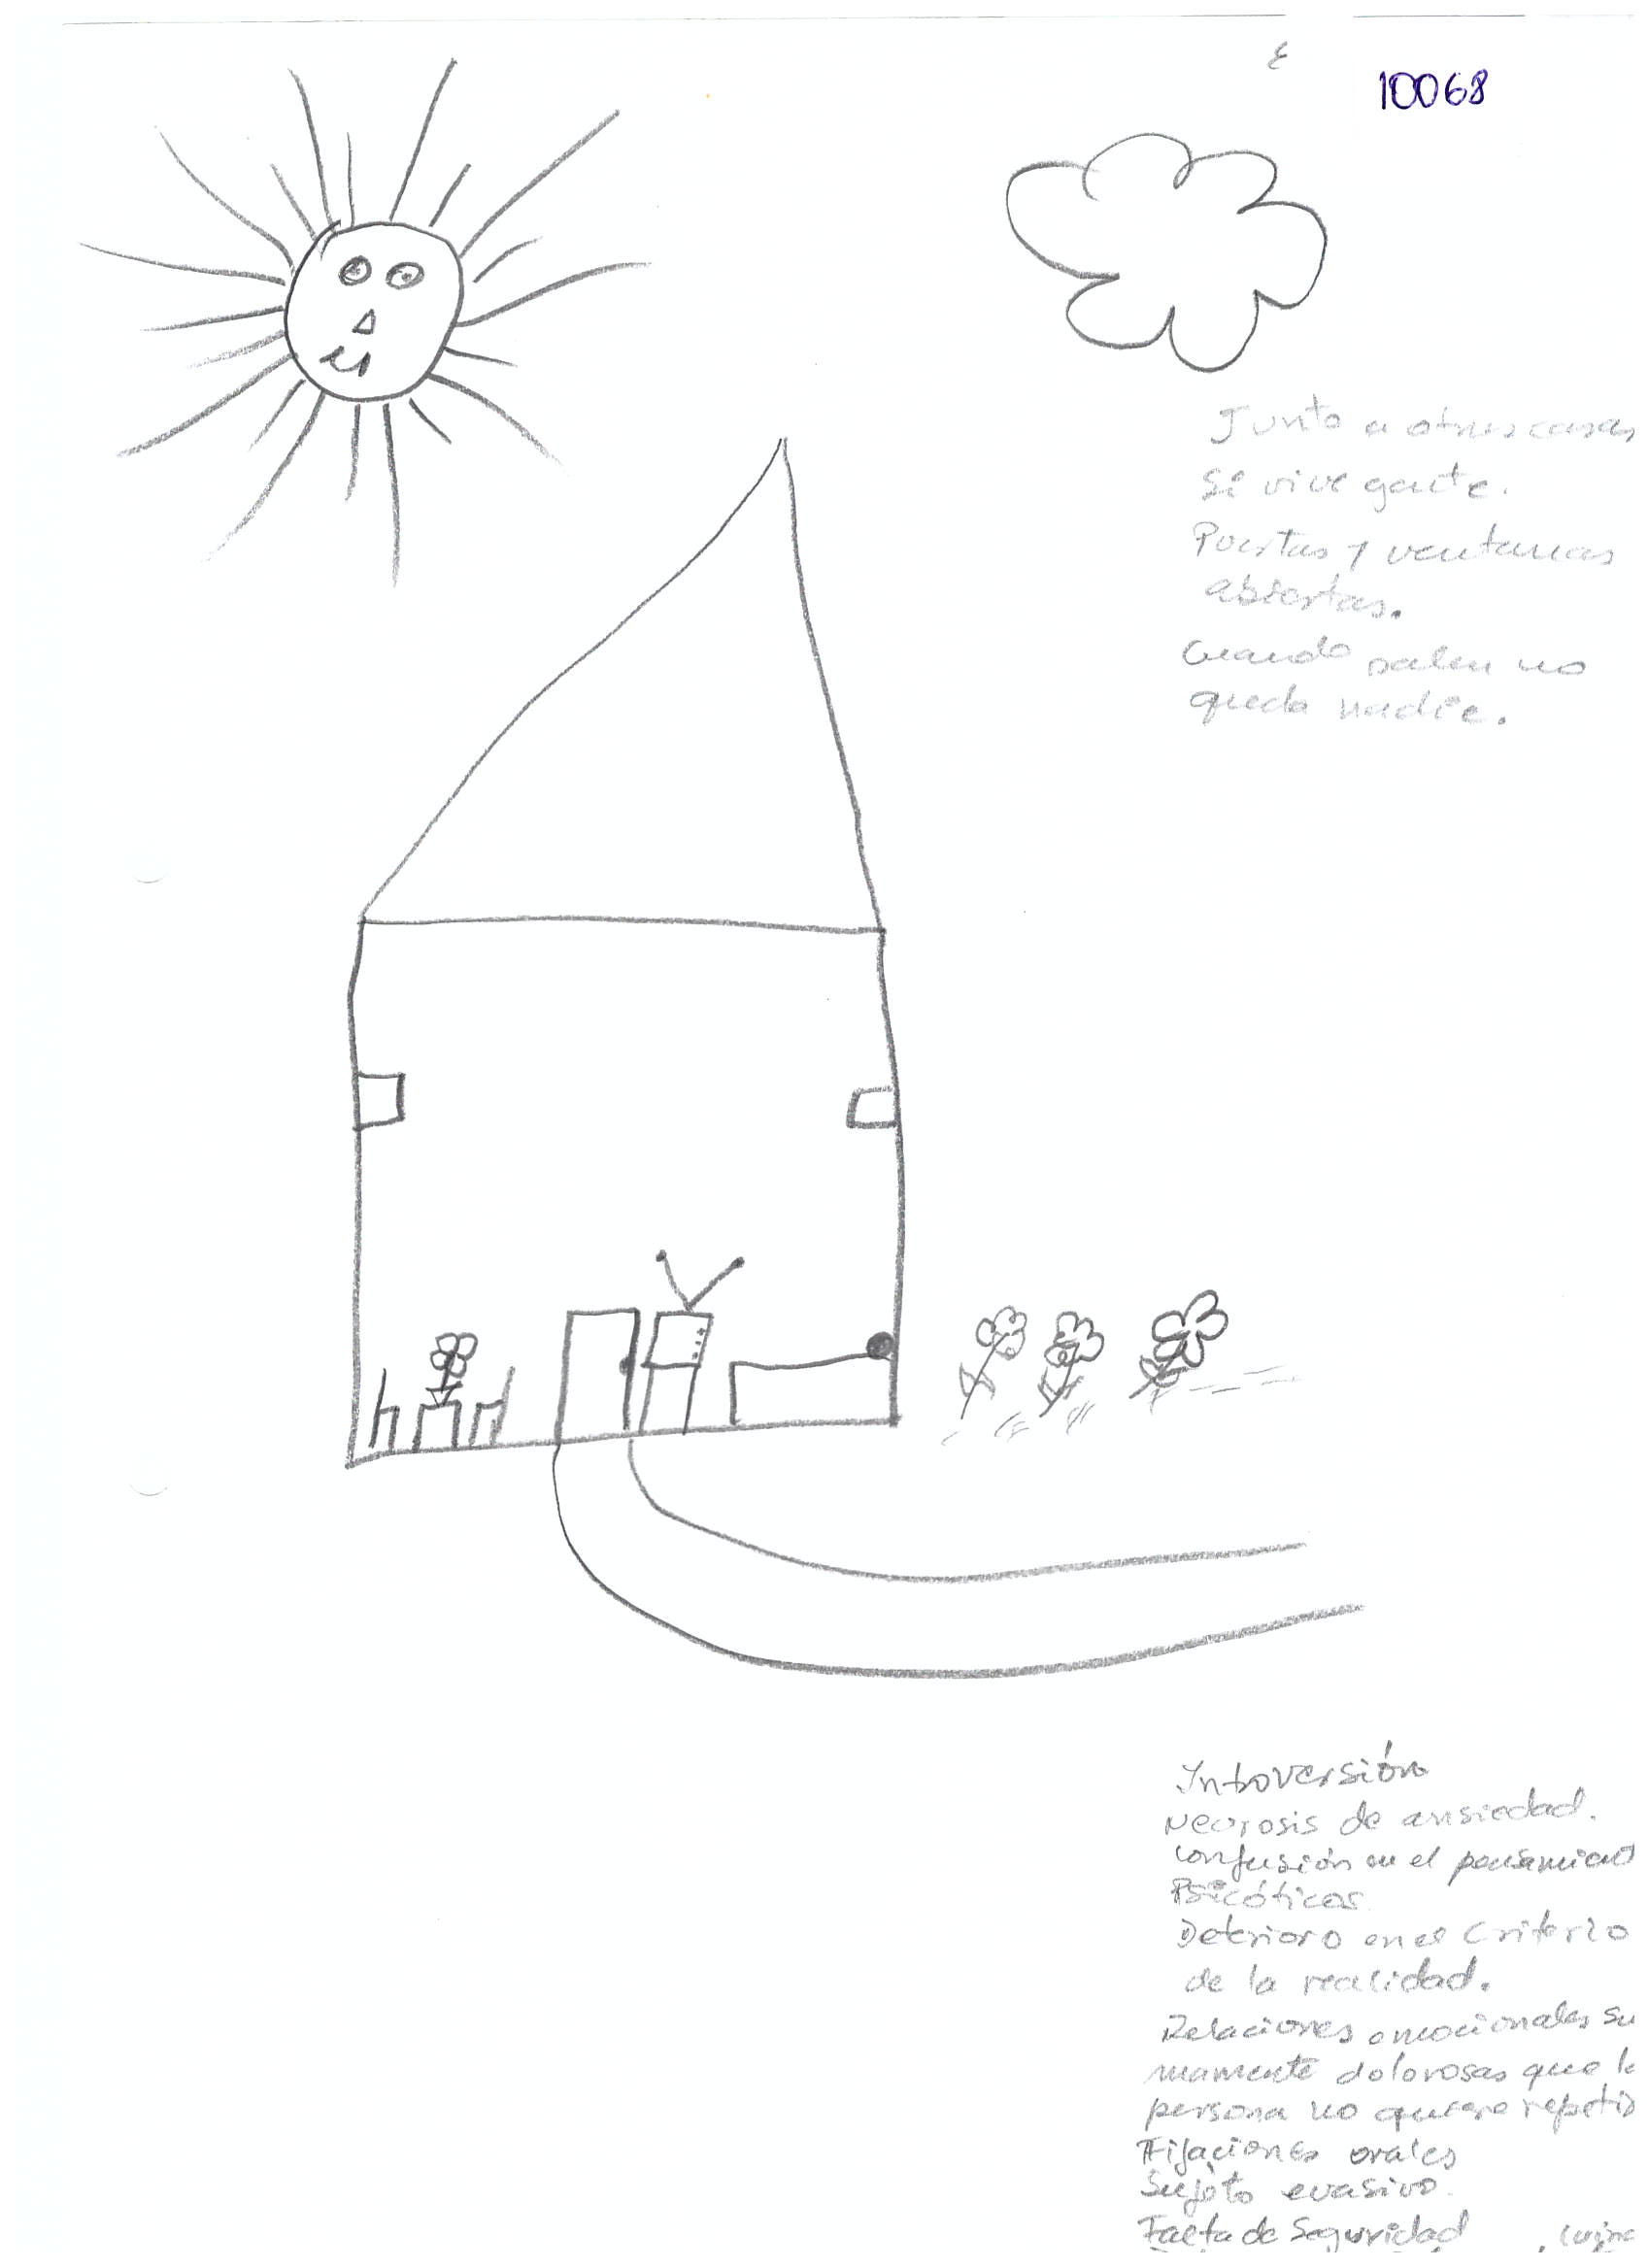 10068
Junto a otras casas
Si vive gente.
Puertas y ventanas
abiertas.
Cuando salen no
queda nadie.
Introversión
Neurosis de ansiedad.
Confusión en el pensamient
Psicóticos
Deterioro en el Criterio
de la realidad.
Relaciones emocionales su
mamente dolorosas que l
persona no quiere repetir
Fijaciones orales
Sujeto evasivo.
Falta de Seguridad